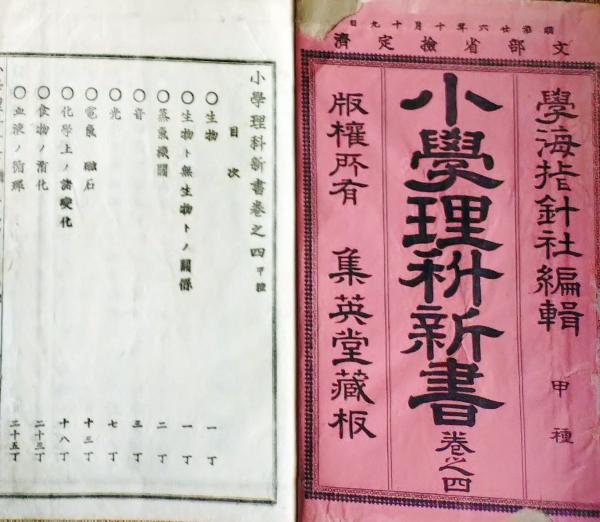 明治廿六年十月十九日
文部省檢定濟
學海指針社編輯 甲種
小學理科新書 卷之四
版權所有 集英堂藏板
小學理科新書卷之四 甲種
目次
〇生物 一丁
〇生物ト無生物トノ關係 一丁
〇蒸氣機關 二丁
〇音 三丁
〇光 七丁
〇電氣 磁石 十三丁
〇化學上ノ諸變化 十八丁
〇食物ノ消化 二十三丁
〇血液ノ循環 二十五丁